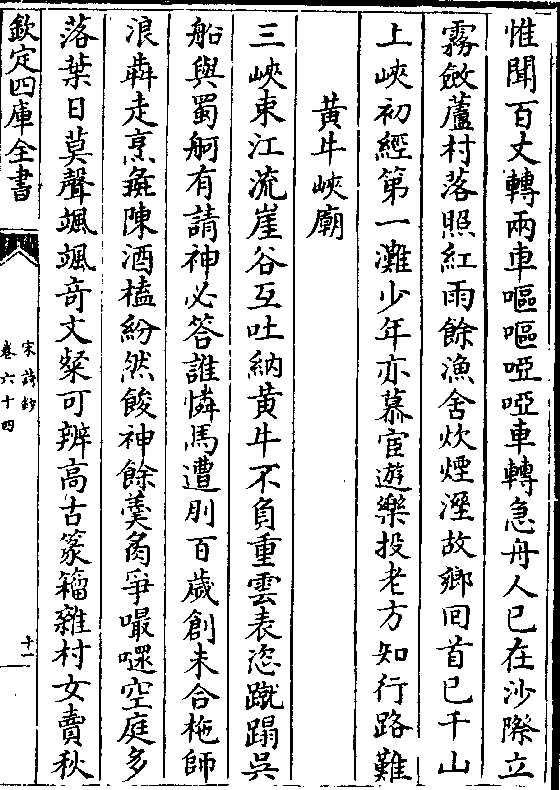 惟聞百丈轉兩車嘔嘔啞啞車轉急舟人已在沙際立
霧斂蘆村落照紅雨餘漁舍炊煙溼故鄉回首已千山
上峽初經第一灘少年亦慕宦遊樂投老方知行路難
黃牛峽廟
三峽束江流崖谷互吐納黃牛不負重雲表恣蹴蹋吳
船與蜀舸有請神必答誰憐馬遭刖百歲創未合柂師
浪犇走烹彘陳酒榼紛然餕神餘羹臠爭嘬㗱空庭多
落葉日莫聲颯颯奇文粲可辨高古篆籀雜村女賣秋
欽定四庫全書
宋詩鈔
卷六十四
十一